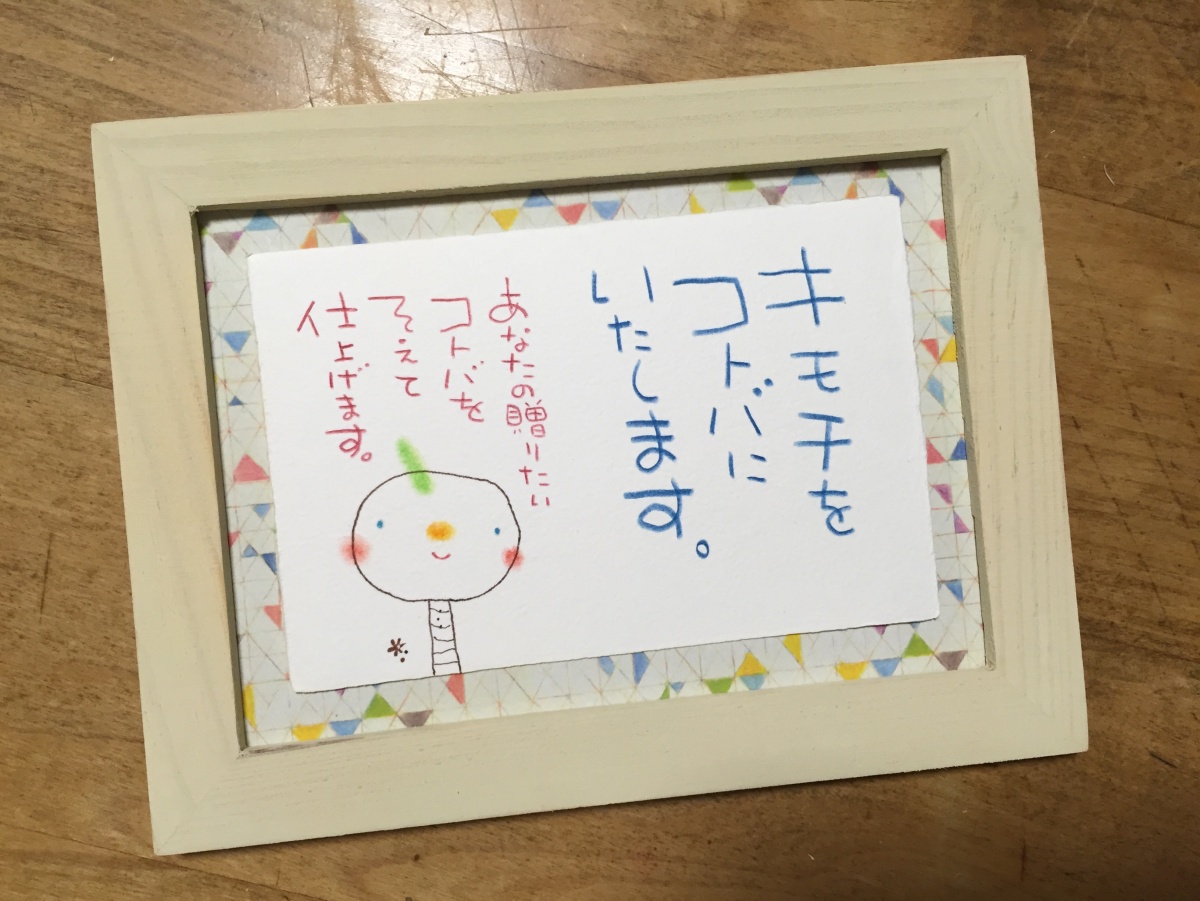 キモチを
コトバに
いたします。
あなたの贈りたい
コトバを
そえて
仕上げます。